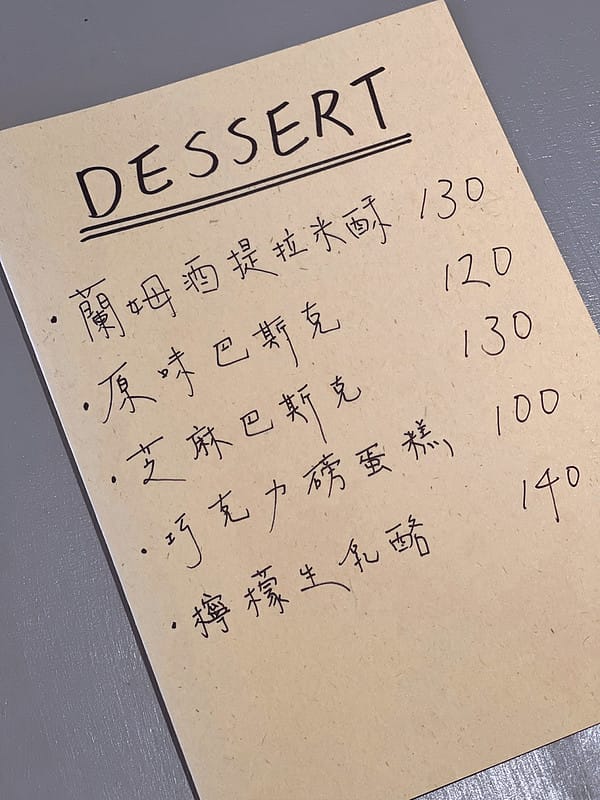 DESSERT
・蘭姆酒提拉米酥 130
・原味巴斯克 120
・芝麻巴斯克 130
・巧克力磅蛋糕 100
・檸檬生乳酪 140